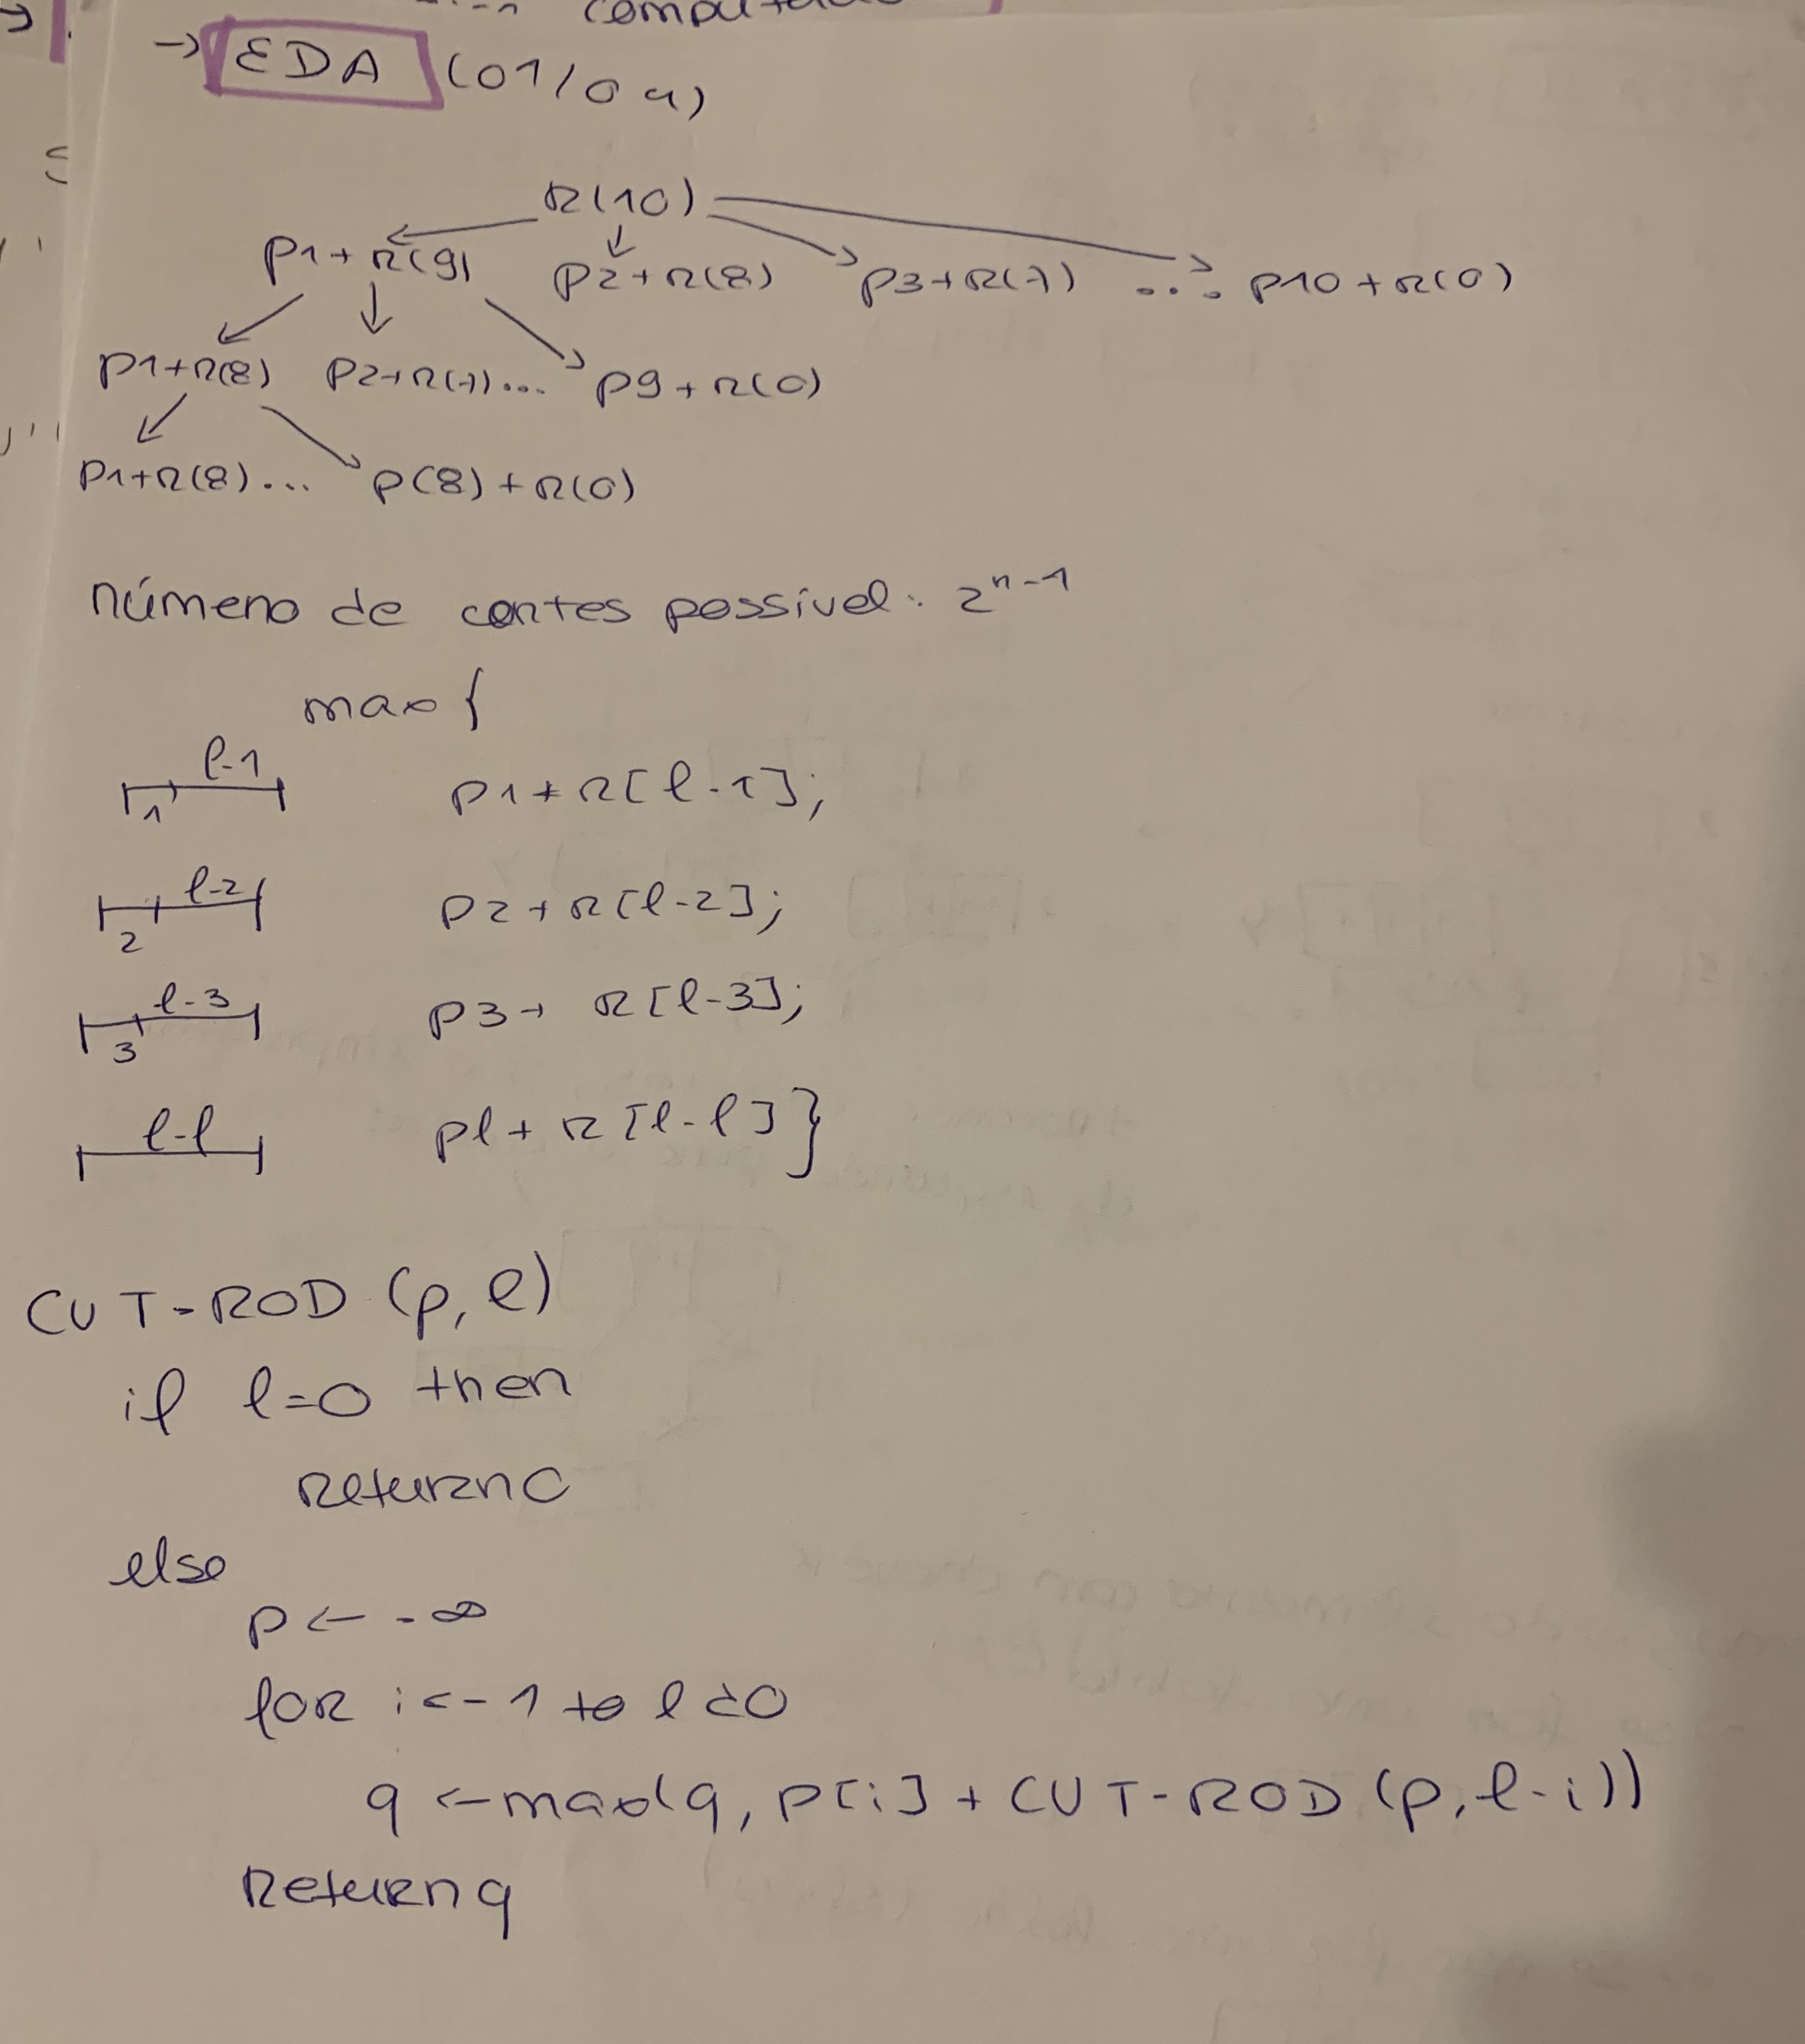 → EDA (01/04)
R(10)
p1+R(9) p2+R(8) p3+R(7) ... p10+R(0)
p1+R(8) p2+R(7)... p9+R(0)
p1+R(8)... p(8)+R(0)
número de cortes possivel: 2^n-1
max {
l-1
1 p1+R[l-1];
l-2
2 p2+R[l-2];
l-3
3 p3+ R[l-3];
l-l pl+R[l-l]}
CUT-ROD (p,l)
if l=0 then
Return 0
else
p ← -∞
for i <- 1 to l do
q ← max(q, p[i] + CUT-ROD (p, l-i))
Return q